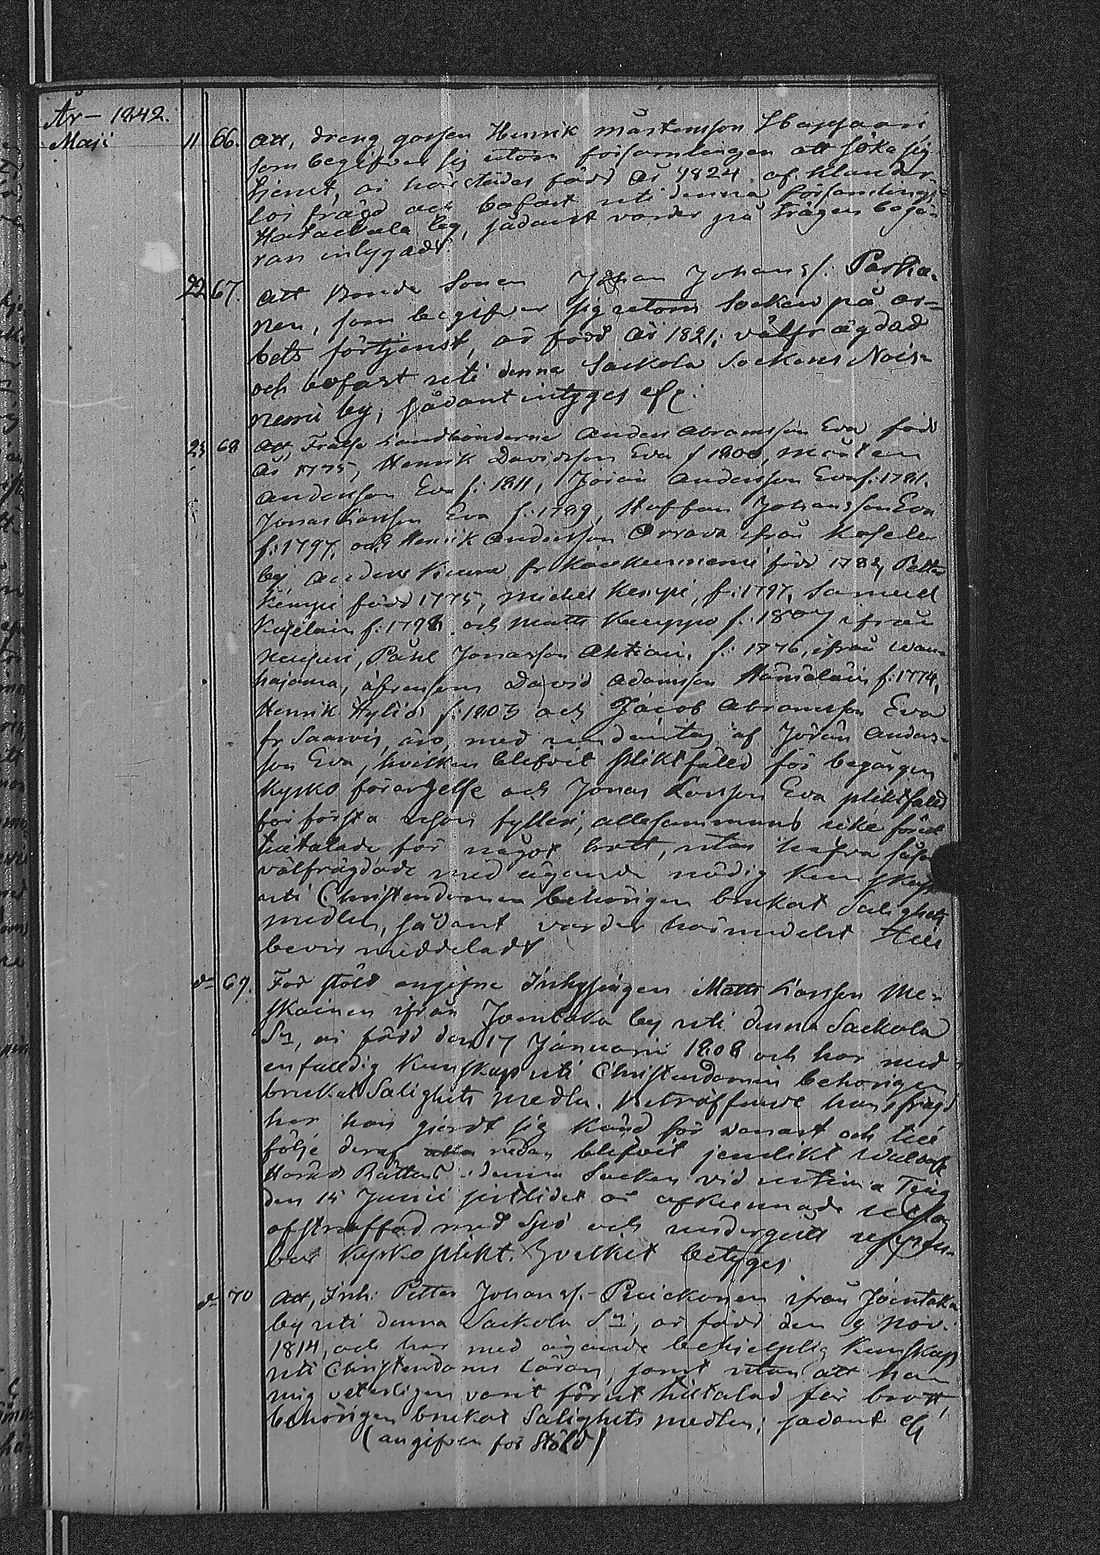 År 1842.
Maji 11 66. Att, dreng gossen Henrik Mårtensson
som begifver sig utom församlingen att söka sig
tjenst, är härstädes född år 1824. af klander
lös frägd och bofast uti denna församlings
by, sådant varder på trägen begä-
ran intygadt
22 67. Att Bonde Sonen Johan Johansf. Parka-
nen, som begifver sig utom Socken på ar-
bets förtjenst, är född år 1821. välfrägdad
och bofast uti denna Sackola Sockens Nois-
niemi by, sådant intyges etc.
23 68 Att, Frälse Landbönderne Anders Abramsson Eva född
år 1775, Henrik Davidsson Eva f. 1800, Mårten
Andersson Eva f. 1811, Jöran Andersson Eva f. 1781.
Jonas Larsson Eva f. 1789, Staffan Johansson Eva
f. 1797, och Henrik Andersson Orrava ifrån Kosela
by, Anders fr. född 1782, Petter
Kempi född 1775, Michel Kempi, f. 1797, Samuel
f. 1798 och Matts Kauppo f. 1807 ifrån
Påhl Jonasson Ahtian. f. 1776, ifrån
äfvensom David Adamsson Hämäläin f. 1774,
Henrik Hyliö f. 1803 och Jacob Abramsson Eva
fr Saarvis, äro, med undantag af Jöran Anders-
son Eva, hvilken blifvit pliktfälld för begången
kyrko förargelse och Jonas Larsson Eva pliktfälld
för första resan fylleri, allesammans icke förut
tilltalade för något brott, utan
välfrägdade med ägande nödig kunskap
uti Christendomen behörigen brukat Salighets
medlen, sådant varder härmedelst till
bevis meddeladt
d: 69. För stöld angifne Inhysingen Matts Larsson Me-
skainen ifrån Joentaka by uti denna Sackola
Sn, är född den 17 Januarii 1808 och har med
enfaldig kunskap uti Christendomen behörigen
brukat Salighets medlen. Beträffande hans frägd
har han gjordt sig känd för och till
följe deraf redan blifvit jemlikt
Härads Rättens i denna Socken vid Ting
den 15 Junii
afstraffad med Spö och undergått
bar kyrkoplikt. Hvilket betyges
d: 70 Att, Inh: Petter Johansf. Puickonen ifrån Joentaka
by uti denna Sackola Sn, är född den 9 Nov.
1814, och har med ägande behjelplig kunskap
uti Christendoms Läran, samt utan att han
mig veterligen varit förut tilltalad för brott,
behörigen brukat Salighets medlen; sådant etc
(angifven för Stöld)